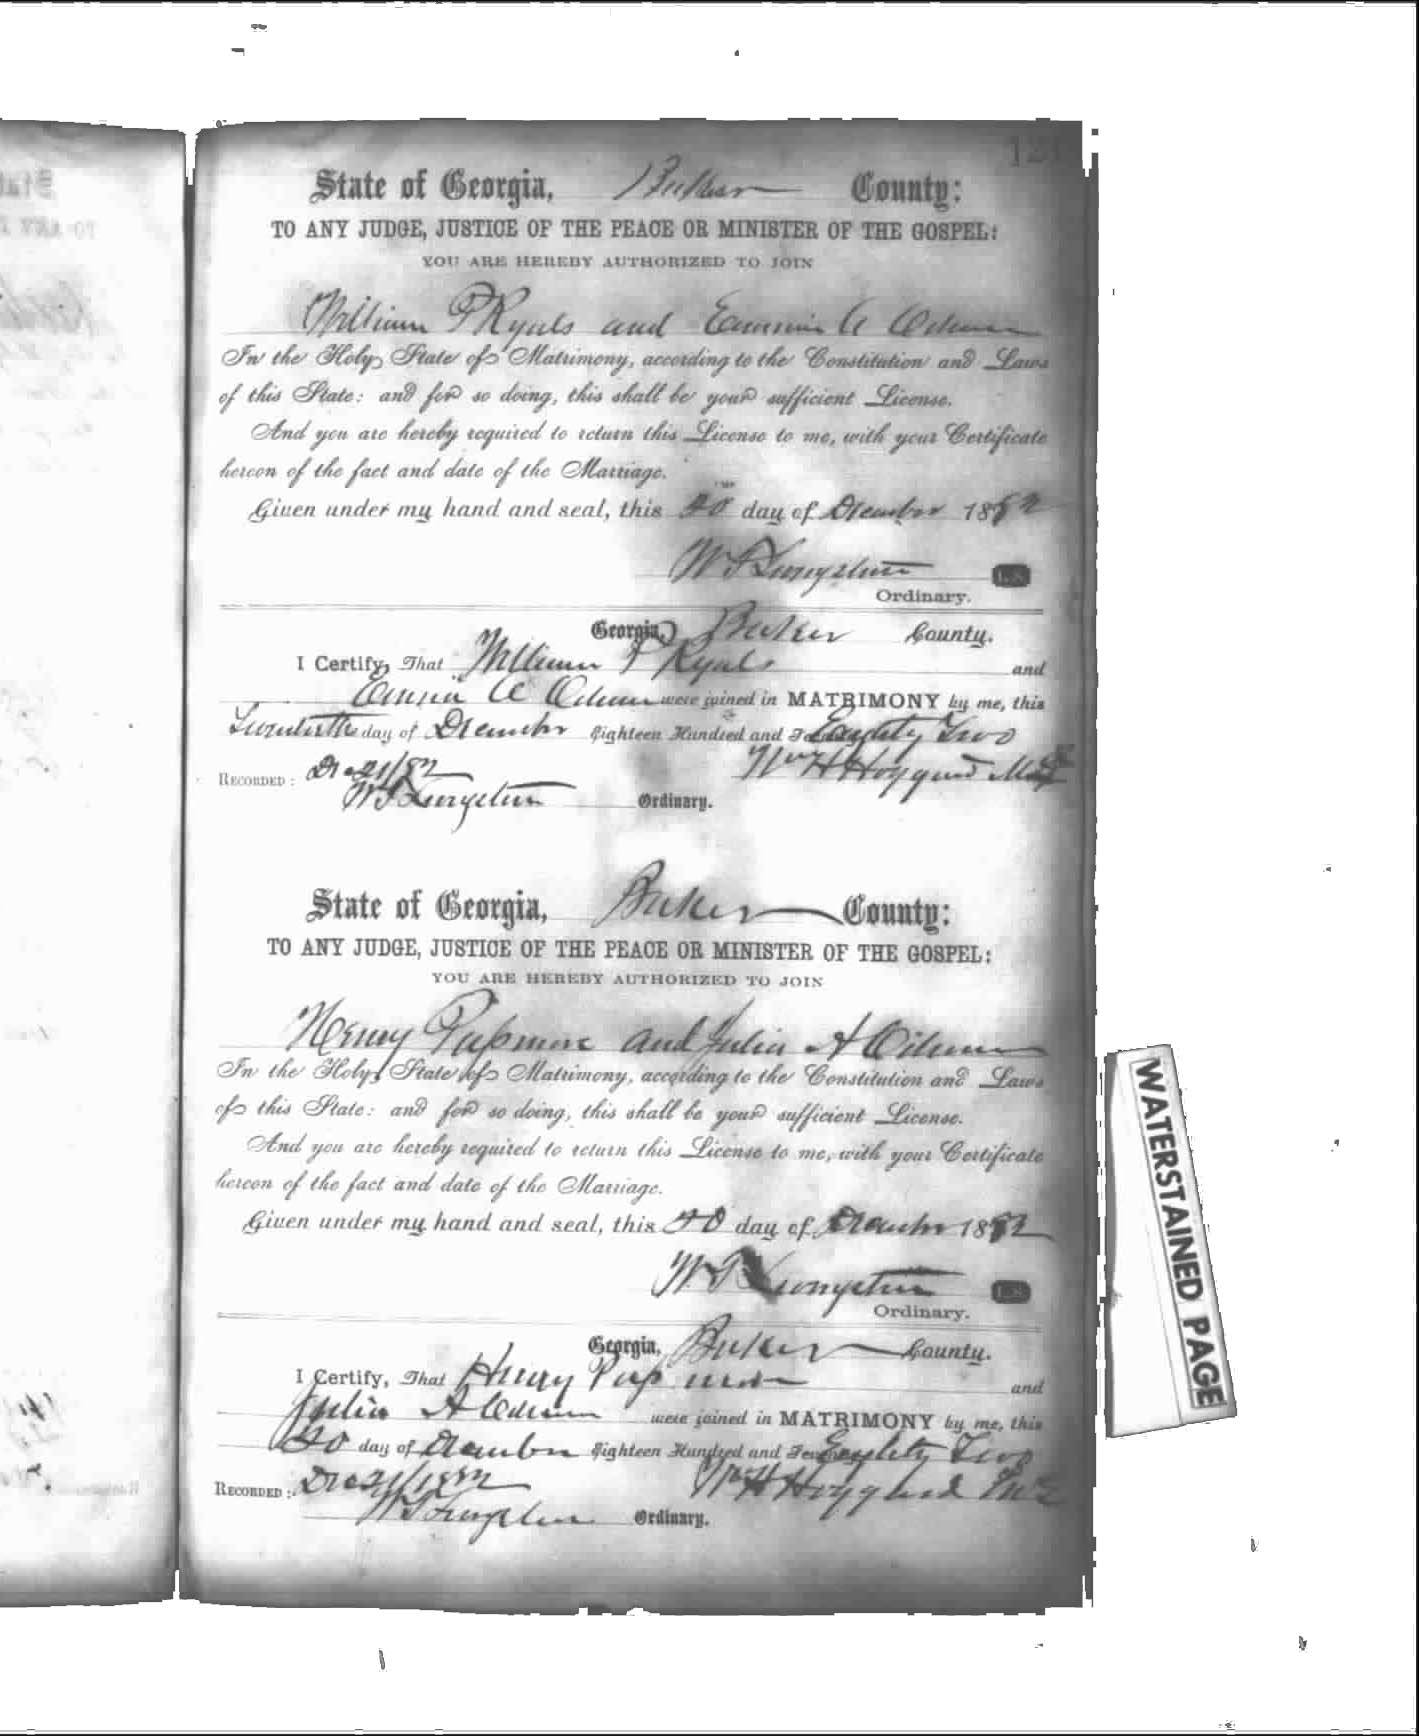 State of Georgia, Baker County:
TO ANY JUDGE, JUSTICE OF THE PEACE OR MINISTER OF THE GOSPEL:
YOU ARE HEREBY AUTHORIZED TO JOIN
William T Ryals and A Odum
In the Holy State of Matrimony, according to the Constitution and Laws
of this State: and for so doing, this shall be your sufficient License.
And you are hereby required to return this License to me, with your Certificate
hereon of the fact and date of the Marriage.
Given under my hand and seal, this 20 day of December 1882
W T Livingston L.S.
Ordinary.
Georgia, Baker County.
I Certify, That William T Ryals and
A Odum were joined in MATRIMONY by me, this
Twentieth day of December Eighteen Hundred and Eighty Two
RECORDED: Dec 21/82 Wm H
W T Livingston Ordinary.
State of Georgia, Baker County:
TO ANY JUDGE, JUSTICE OF THE PEACE OR MINISTER OF THE GOSPEL:
YOU ARE HEREBY AUTHORIZED TO JOIN
Henry and Julia A Odum
In the Holy State of Matrimony, according to the Constitution and Laws
of this State: and for so doing, this shall be your sufficient License.
And you are hereby required to return this License to me, with your Certificate
hereon of the fact and date of the Marriage.
Given under my hand and seal, this 20 day of December 1882
W T Livingston L.S.
Ordinary.
Georgia, Baker County.
I Certify, That Henry and
Julia A Odum were joined in MATRIMONY by me, this
20 day of December Eighteen Hundred and Eighty Two
RECORDED: Dec 21/1882 Wm H
W T Livingston Ordinary.
WATERSTAINED PAGE